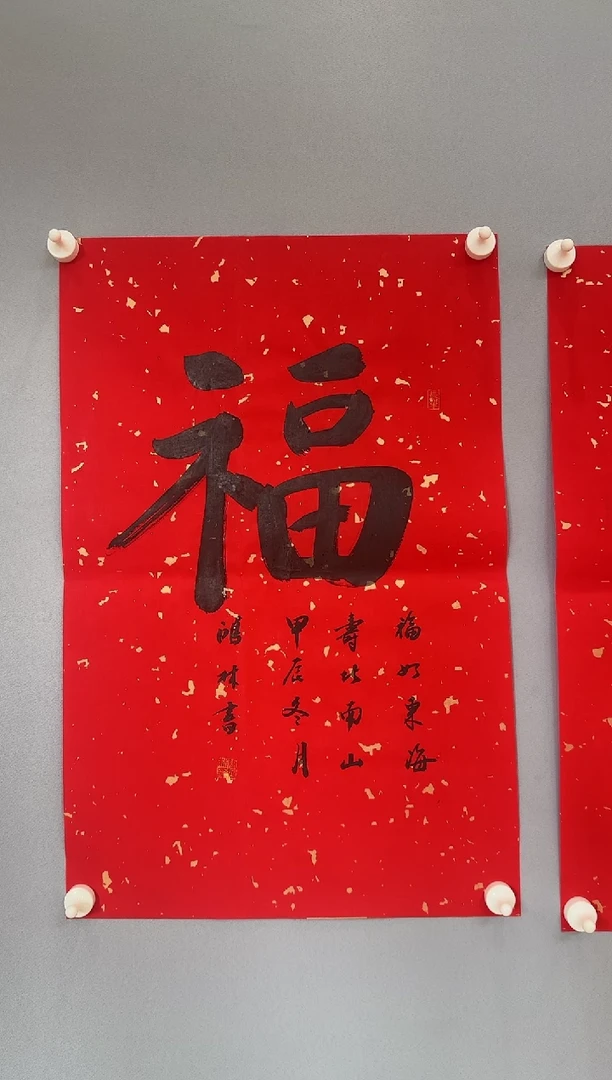 福
福如東海
壽比南山
甲辰冬月
鴻林書